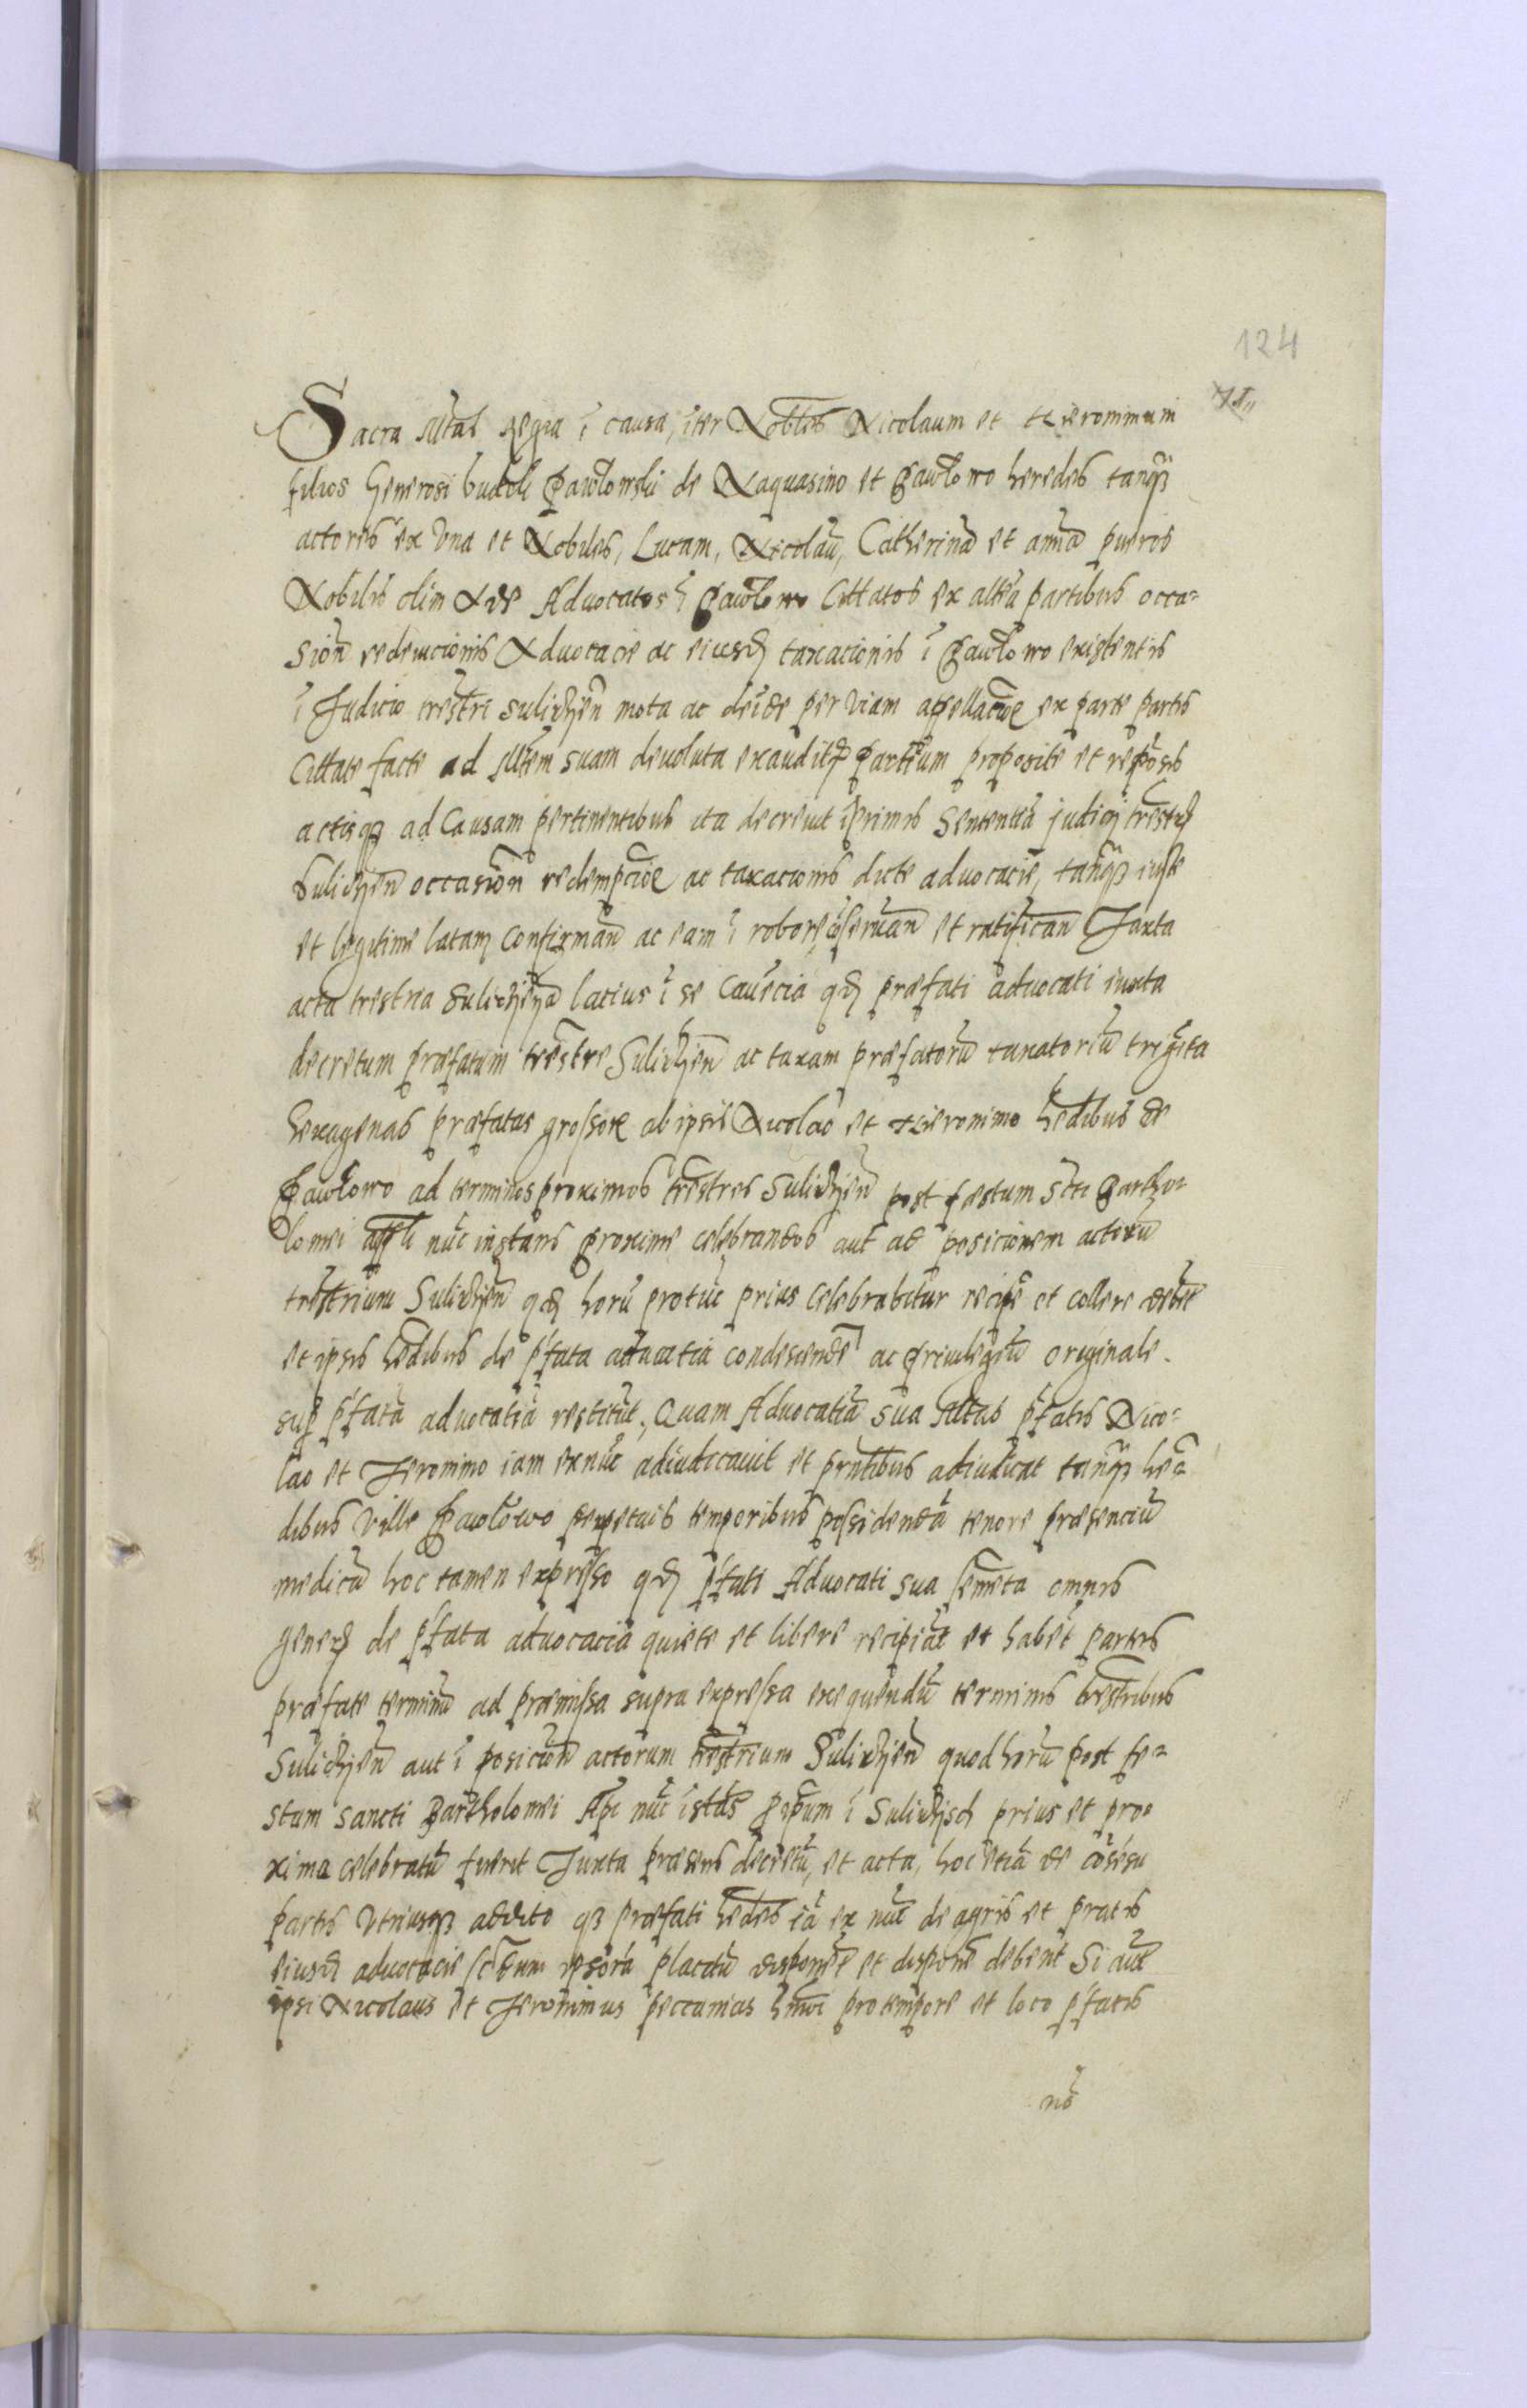 124
Sacra Mtas Regia ī causa, iter Nobles Nicolaum et Hieronimum
filios Generosi budoli Pawlowski de Naquasino et Pawlowo heredes tanq̃
actores ex Vna et Nobiles, Lucam, Nicolaū, Catherinā et annā pueros
Nobilis olim Advocatos ī Pawlowo Cittatos ex altā partibus occa=
sion redemcionis Advocacie ac eiusd taxacionis ī Pawlowo existentis
ī Judicio trestri sulidzien mota ac deide per viam appellacōe ex parte partis
Cittate facte ad Mtem suam devoluta exauditq partium proposite et repōsis
actisq ad Causam pertinentibus ita decrevit īprimis Sententiā judicij trestr
Sulidzien occasion redempciōe ac taxacionis dicte advocacie, tanq iuste
et legitime latam confirmān ac eam ī robore cōservan et ratifican Juxta
acta trestria Sulidzien latius ī se cauēcia qd præfati advocati iuxta
decretum præfatum trestre Sulidzien ac taxam præfatorū taxatoriū trigīta
sexagenas præfatas grossorꝫ ab ipsis Nicolao et Hieronimo hedibus de
Pawlowo ad terminos proximos trestres Sulidzien post fæstum Scti Bartho=
lomei appli nūc instans proxime celebrandos aut ad posicionem actorū
trestrium Sulidzien qd horū protūc prius celebrabitur recipē et tollere debēt
et ipsis hedibus de pfata advocatia condescendē ac privilegiū originale.
sup pfatā advocatiā restitūt, Quam Advocatiā sua Mtas pfatis Nico=
lao et Jeronimo iam exnūc adiudicavit et pntibus adiudicat tanq he=
dibus ville Pawlowo perpetuis temporibus possidendā tenore præsenciū
mediān hoc tamen expresso qd pfati Advocati sua semēta omnis
generꝫ de pfata advocacia quiete et libere recipiāt et habēt partes
præfate terminū ad præmissa supra expressa exequendū terminis trestribus
Sulidzien aut ī posiciōn actorum trestrium Sulidzien quod horū post fe=
stum sancti Bartholomei Apli nūc īstās ī Sulidzisch prius et pro=
xime celebratū fuerit Juxta præsens decretū, et acta, hoc etiā de cōsēsu
partis Vtriusq addito qꝫ præfati hedes iā ex nūc de agris et pratis
eiusd advocacie scdum ipsorū placitū disponēt et disponē debēnt Si aūt
ipsi Nicolaus et Jeronimus peccunias hmōi protempore et loco pfatis
nō